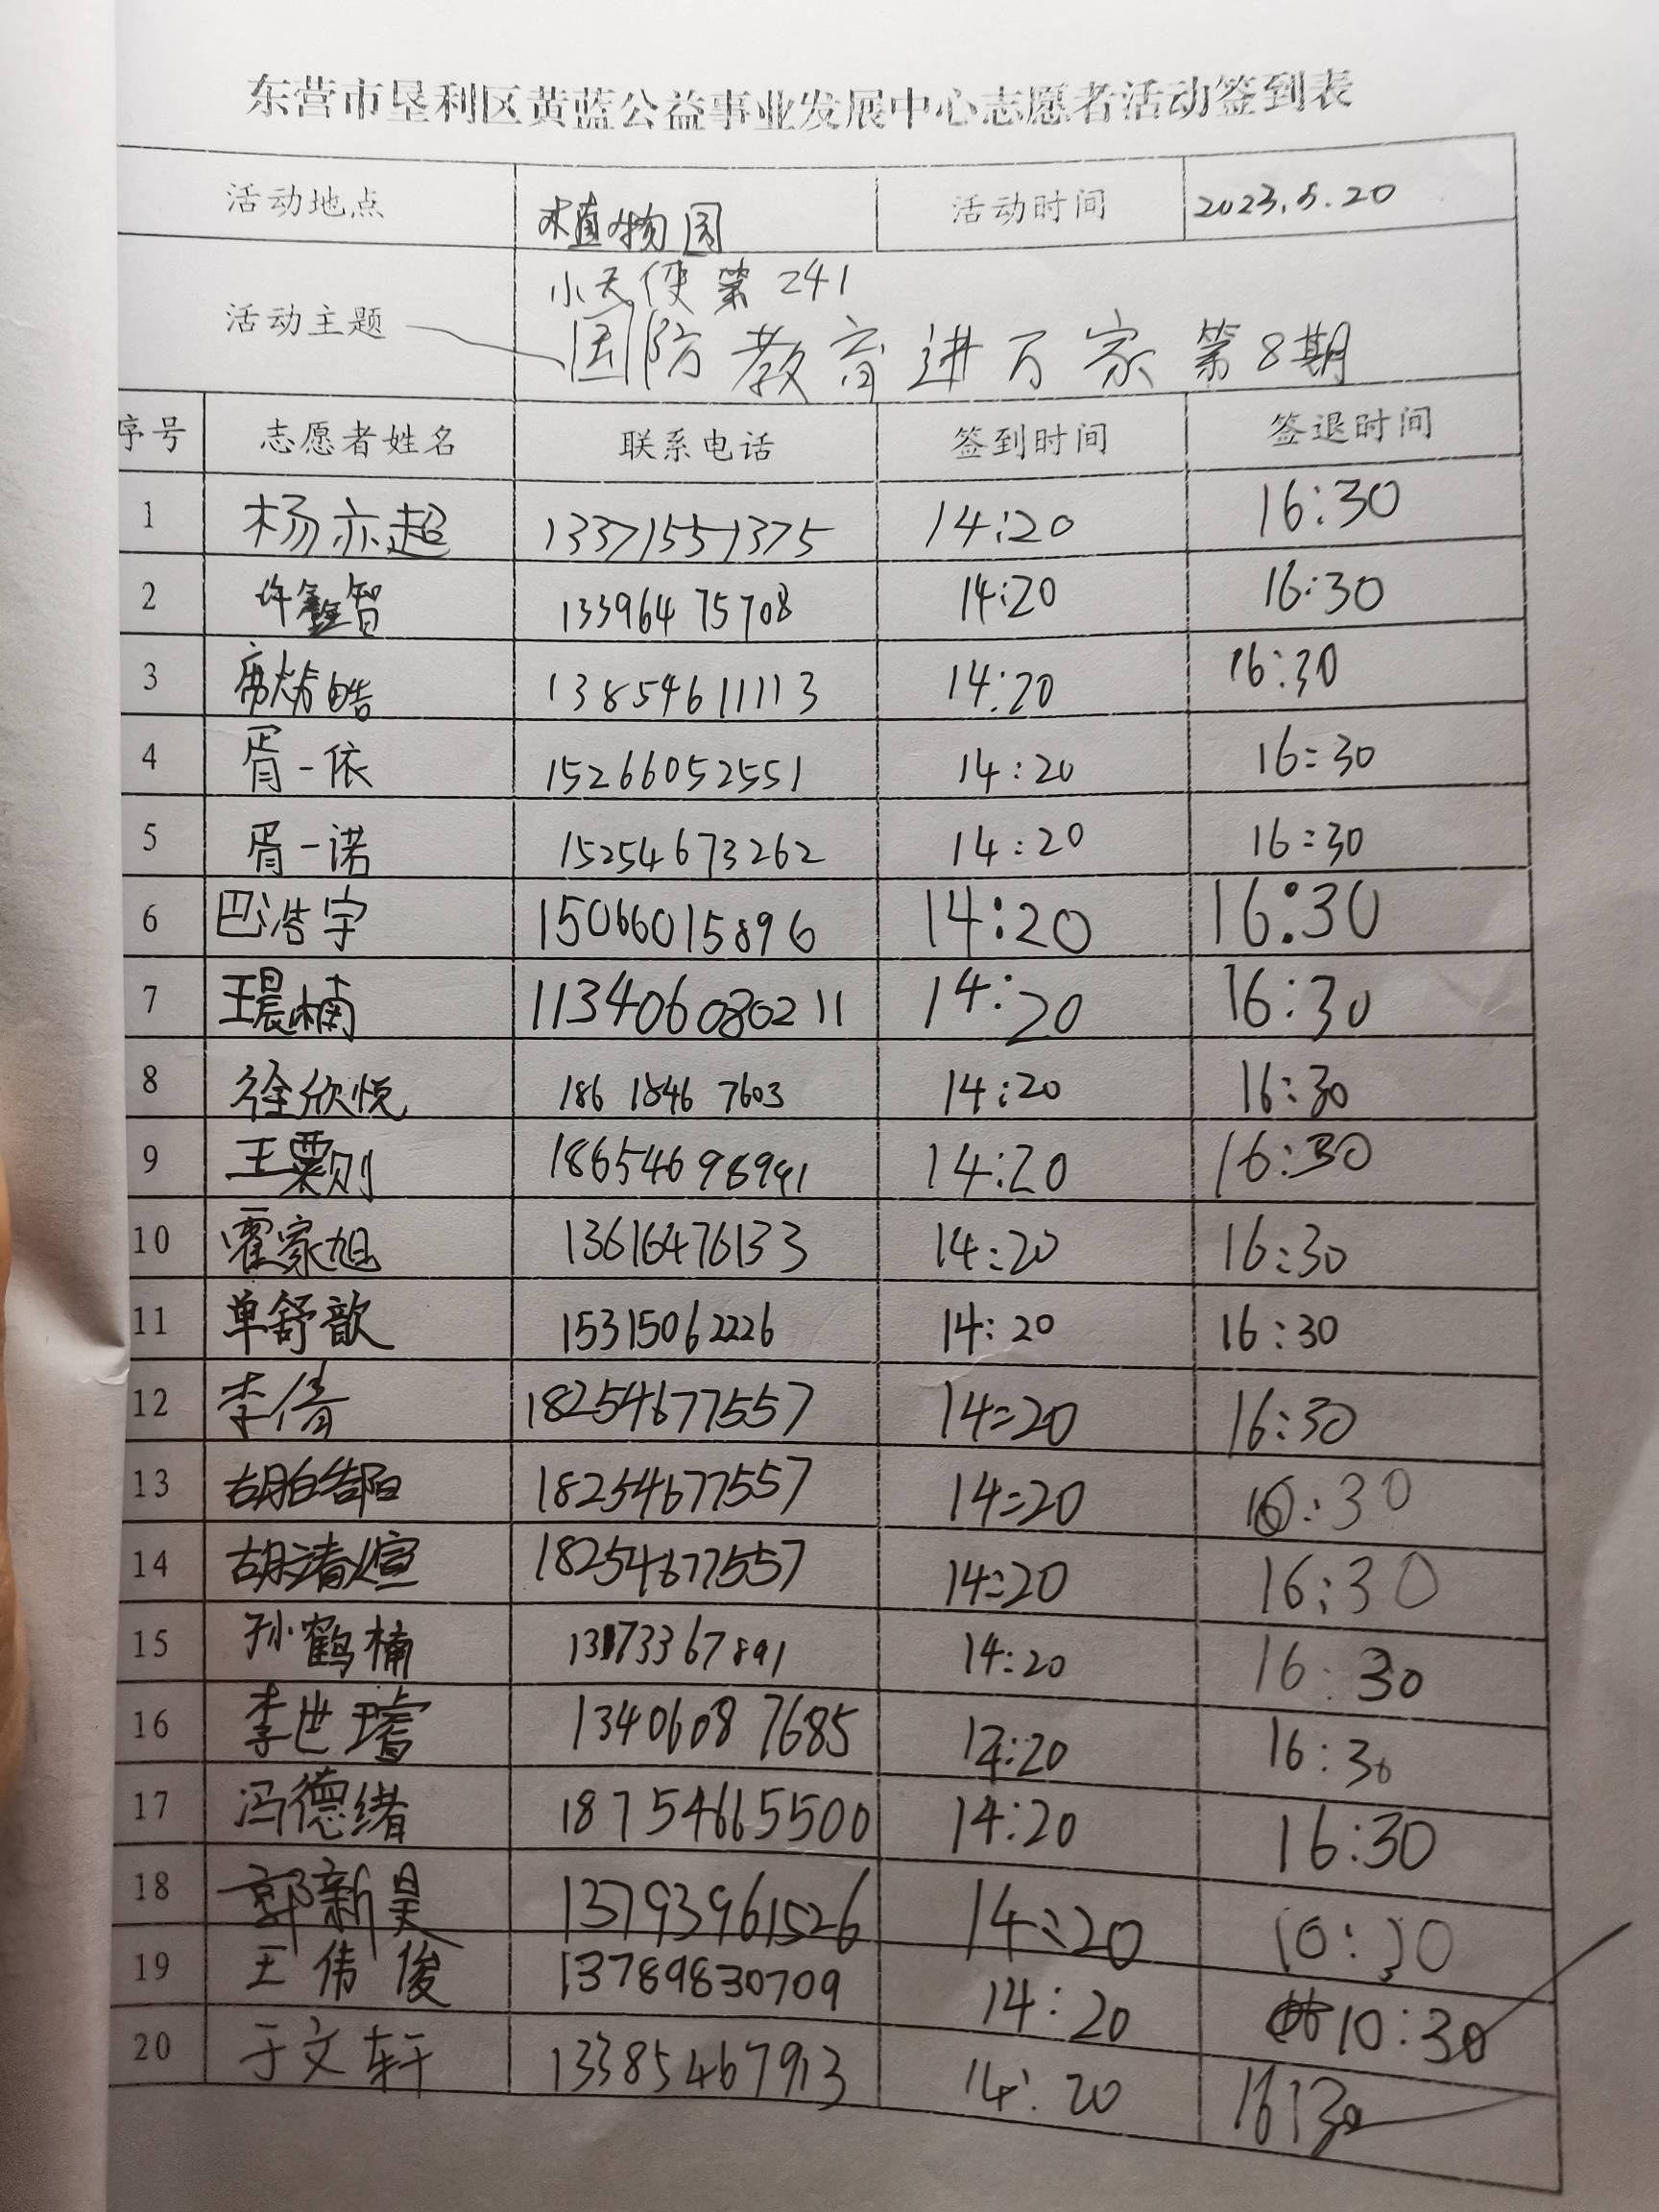 东营市垦利区黄蓝公益事业发展中心志愿者活动签到表
活动地点 植物园 活动时间 2023.5.20
小天使第241
活动主题 国防教育进万家第8期
序号 志愿者姓名 联系电话 签到时间 签退时间
1 杨亦超 13371551375 14:20 16:30
2 许鑫智 13396475708 14:20 16:30
3 皓 13854611113 14:20 16:30
4 胥一依 15266052551 14:20 16:30
5 胥一诺 15254673262 14:20 16:30
6 巴浩宇 15066015896 14:20 16:30
7 王晨楠 113406080211 14:20 16:30
8 徐欣悦 186 1846 7603 14:20 16:30
9 王 则 14:20 16:30
10 霍家旭 13616476133 14:20 16:30
11 单舒歆 15315062226 14:20 16:30
12 李倩 18254677557 14:20 16:30
13 胡皓阳 18254677557 14:20 16:30
14 胡清煊 18254677557 14:20 16:30
15 孙鹤楠 14:20 16:30
16 李世 13406087685 14:20 16:30
17 冯德绪 18754665500 14:20 16:30
18 郭新昊 13793961526 14:20 10:30
19 王伟俊 13789830709 14:20 10:30
20 于文轩 13385467913 14:20 16:30